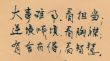 大事难事看担当
逆境顺境看胸襟
有舍有得看智慧